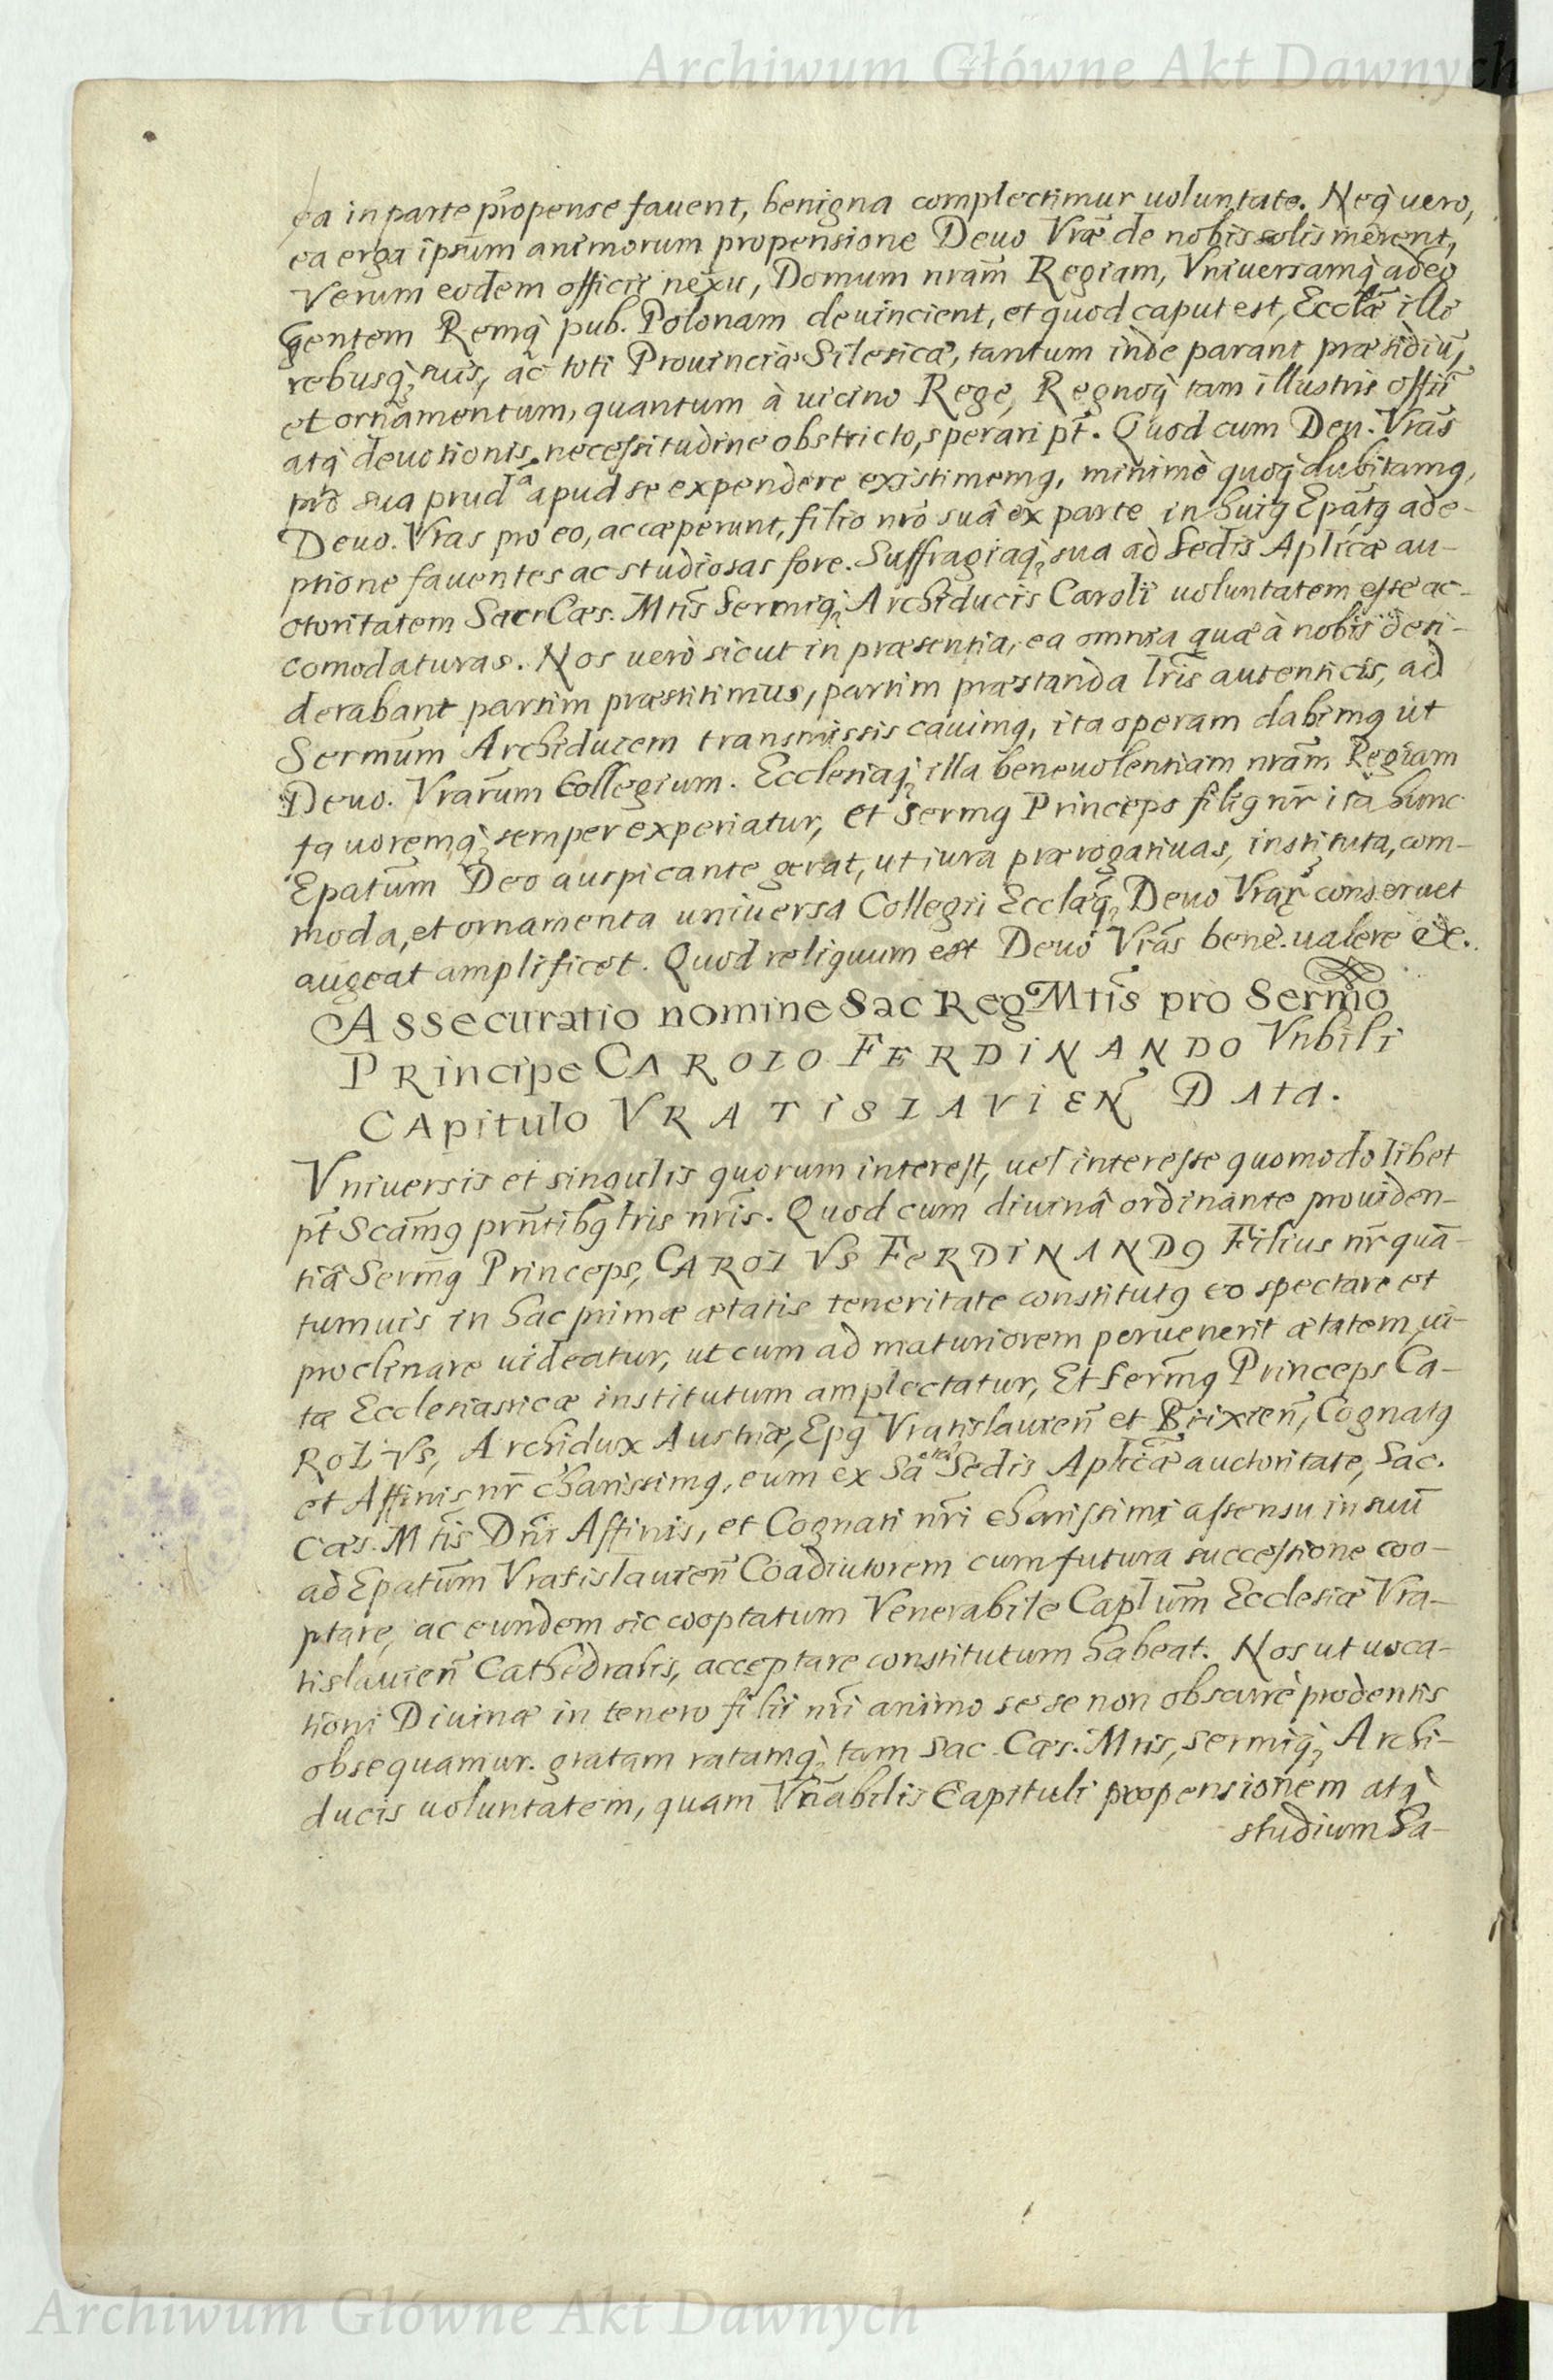 Archiwum Główne Akt Dawnych
ea in parte propense fauent, benigna complectimur uoluntate. Neq̀ uero,
ea erga ipsum̃ animorum propensione Deuo Vrãe de nobis solis mẽrent,
Verum eodem officii nexu, Domum nrãm Regiam, Vniuersamq̀ adeo
Gentem Remq̀ pub. Polonam deuincient, et quod caput est, Ecclãe illi
rebusq̀ suis, ac toti Prouinciæ Silesicæ, tantum inde parant præsidiũ,
et ornamentum, quantum à uicino Rege, Regnoq̀ tam illustris offìi
atq̀ deuotionis necessitudine obstricto, sperari pt̃. Quod cum Deu. Vrãs
pro sua prud^ia apud se expendere existimemꝰ, minimè quoq̀ dubitamꝰ,
Deuo. Vras pro eo, ac cæperunt, filio nrõ suâ ex parte in huiꝰ Epãtꝰ ade-
ptione fauentes ac studiosas fore. Suffragiaq̀ sua ad Sedis Aplicæ au-
ctoritatem Sacr Cæs. Mtis Sermiq̀ Archiducis Caroli uoluntatem esse ac-
comodaturas. Nos uerò sicut in præsentia, ea omnia quæ à nobis desi-
derabant partim præstitimus, partim præstanda lris̃ autenticis, ad
Sermum̃ Archiducem transmissis cauimꝰ, ita operam dabimꝰ ut
Deuo. Vrarum̃ Collegium. Ecclesiaq̀ illa beneuolentiam nrãm Regiam
fauoremq̀ semper experiatur, et Sermꝰ Princeps filiꝰ nr̃ ita hunc
Epatum̃ Deo auspicante gerat, ut iura prærogatiuas, instituta, com-
moda, et ornamenta uniuersa Collegii Ecclæq̀, Deuo Vrar̃ conseruet
augeat amplificet. Quod reliquum est Deuo Vrãs bene ualere &c.
Assecuratio nomine Sac Reg Mtis̃ pro Sermo
Principe CAROLO FERDINANDO Vnbili
CApitulo VRATISLAVIEN̄ DAta.
Vniuersis et singulis quorum interest, uel interesse quomodolibet
pt̃ Scam̃ꝰ prñtibꝰ lris nris̃. Quod cum diuinâ ordinante prouiden-
tiâ Serm̃ꝰ Princeps, CAROLVS FeRDINANDꝰ Filius nr̃ quã-
tumuis in hac primæ ætatis teneritate constitutꝰ eo spectare et
proclinare uideatur, ut cum ad maturiorem peruenerit ætatem, ui-
tæ Ecclesiasticæ institutum amplectatur, Et Serm̃ꝰ Princeps Ca-
ROLVS, Archidux Austriæ, Epꝰ Vratislauien̄ et Brixien̄, Cognatꝰ
et Affinis nr̃ charissimꝰ, eum ex Sã^ctæ Sedis Aplicæ auctoritate, Sac.
Cæs. Mtis Dñi Affinis, et Cognati nri charissimi assensu in suũ
ad Epatum̃ Vratislauien̄ Coadiutorem cum futura successione coo-
ptare, ac eundem sic cooptatum Venerabile Caplum̃ Ecclesiæ Vra-
tislauien̄ Cathedralis, acceptare constitutum habeat. Nos ut uoca-
tioni Diuinæ in tenero filii nri animo sese non obscurè prodentis
obsequamur. gratam ratamq̀, tam Sac Cæs. Mtis, Sermiq̀, Archi-
ducis uoluntatem, quam Vñabilis Capituli propensionem atq̀
studium ha-
Archiwum Główne Akt Dawnych